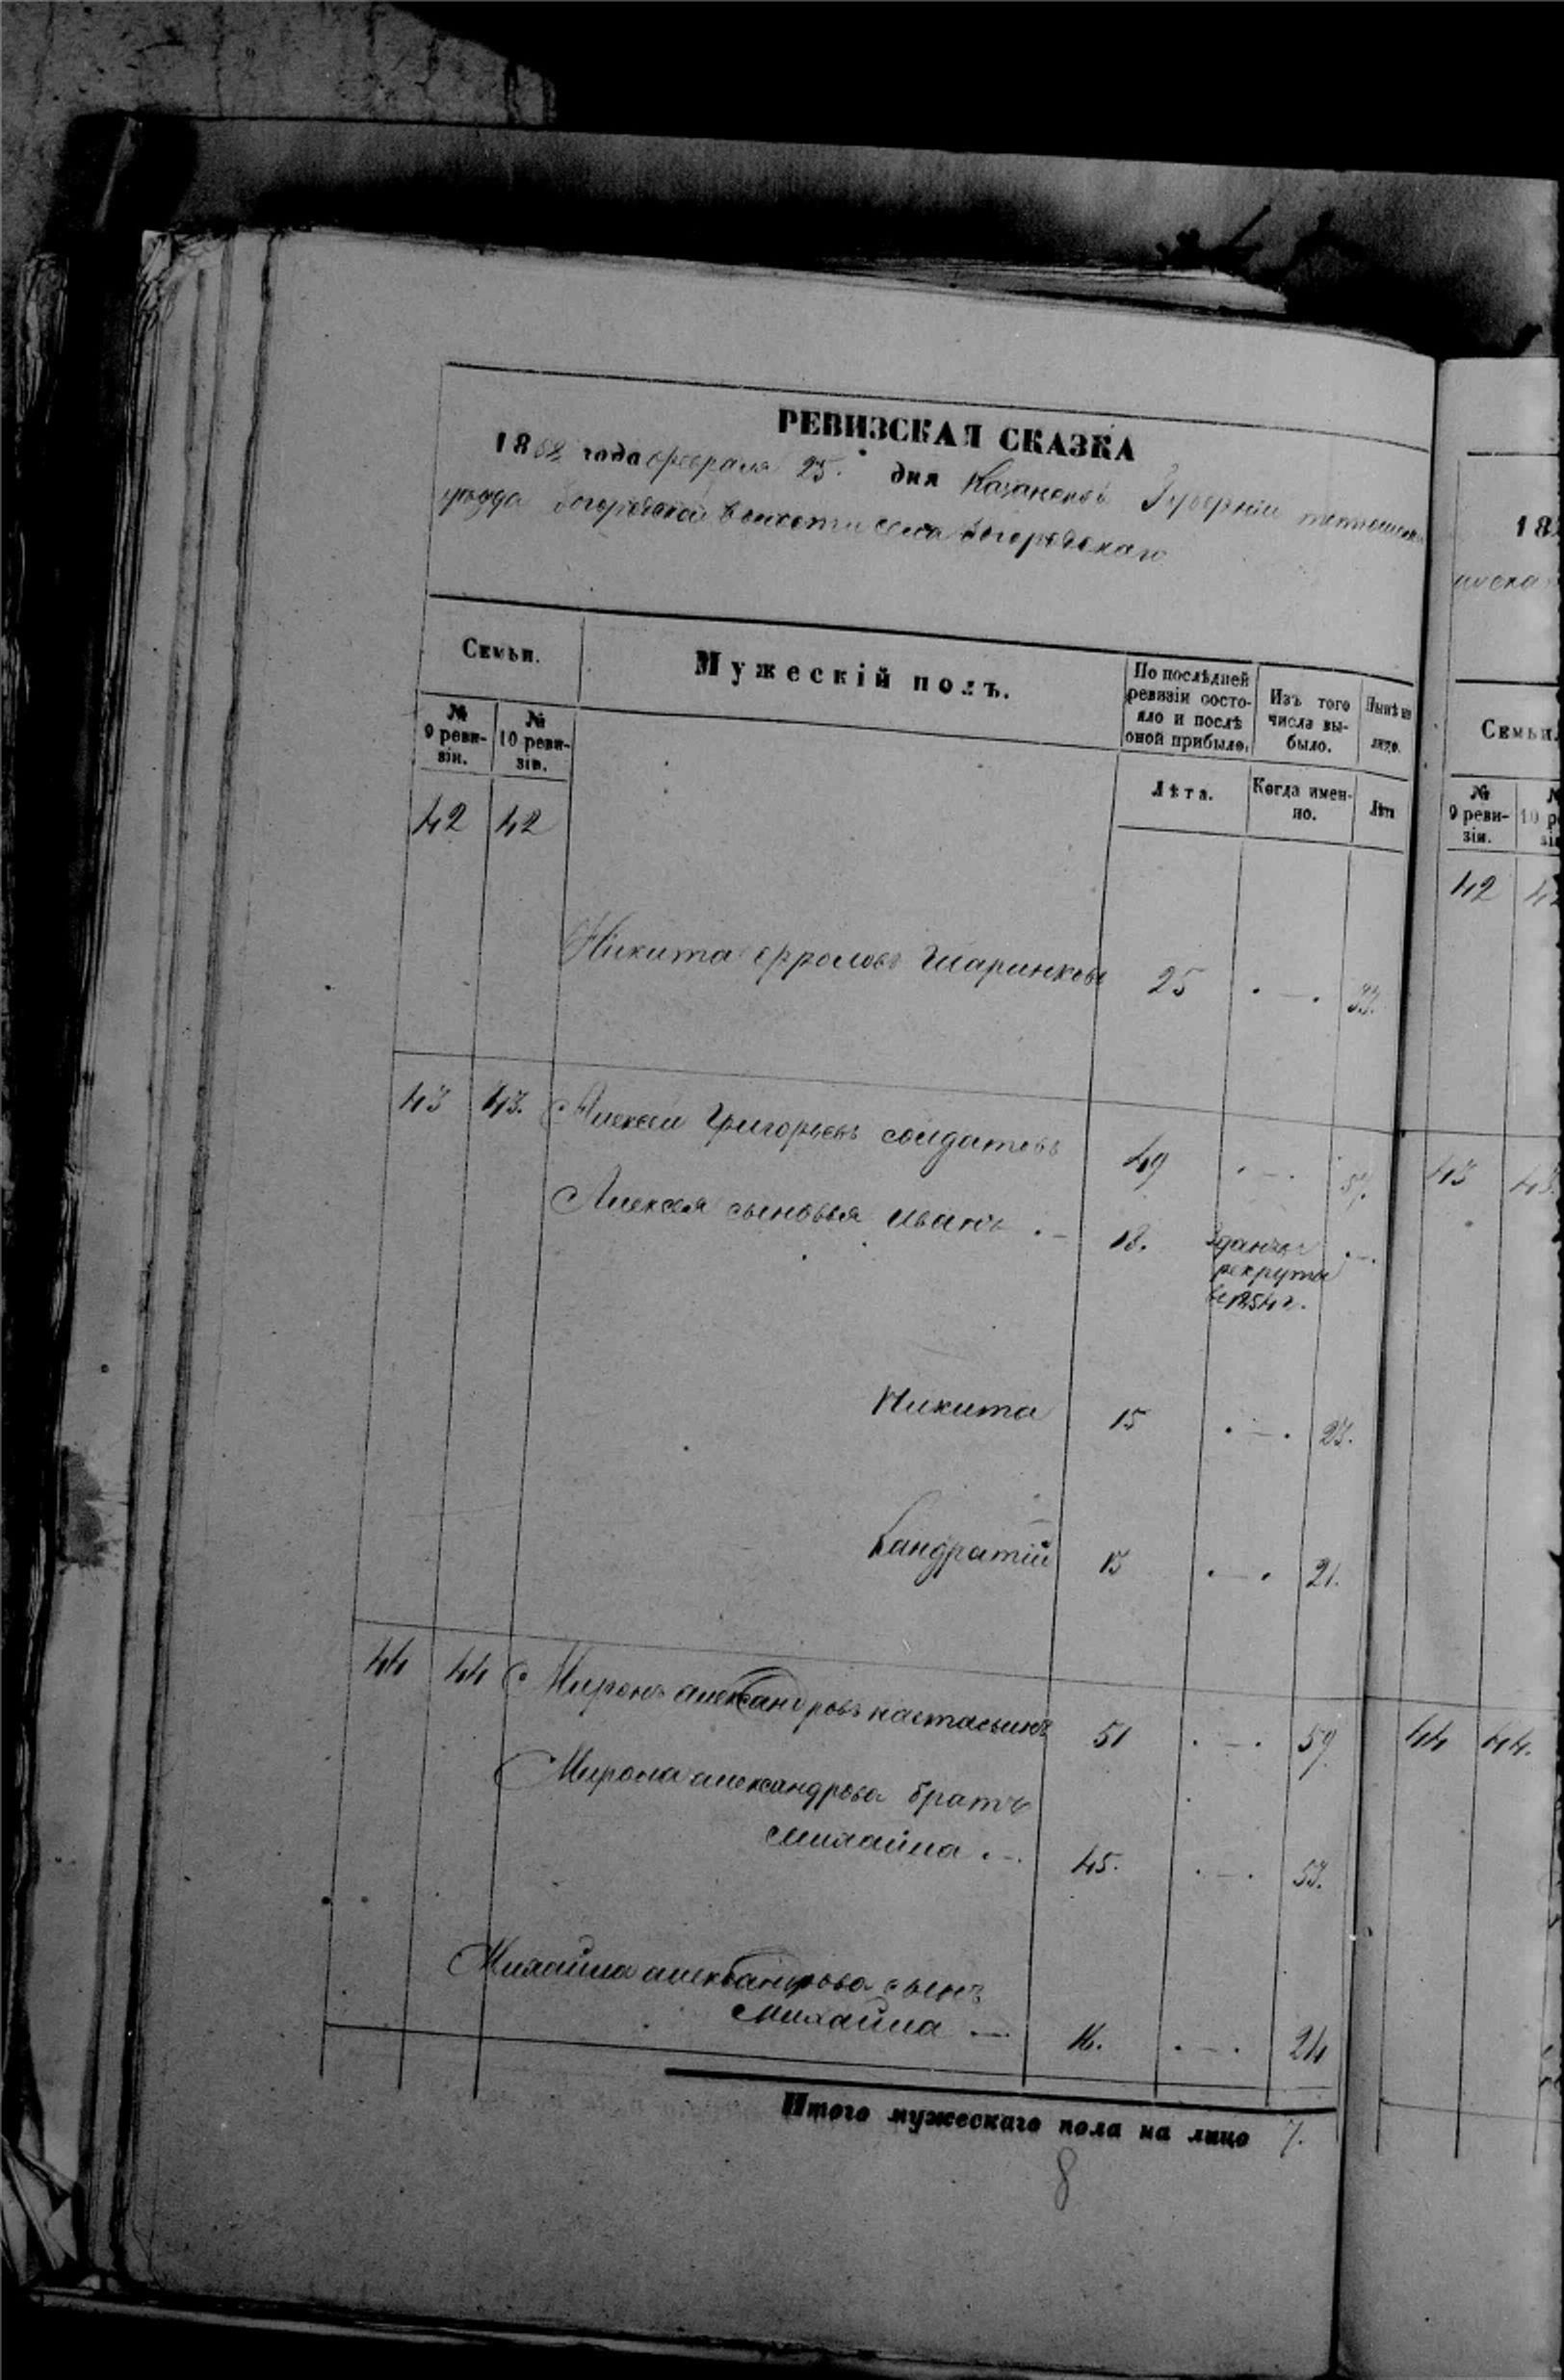 РЕВИЗСКАЯ СКАЗКА
1858 года февраля 25. дня Казанской Губернии тетюшск
уезда Богородской волости села Богородскаго
Семьи.
Мужескій полъ.
По послѣдней ревизіи состояло и послѣ оной прибыло.
Изъ того числа выбыло.
Нынѣ на лицо.
№ 9 ревизіи.
№ 10 ревизіи.
Лѣта.
Когда именно.
Лѣта
42 42
Никита фроловъ 25 . — . 33.
43 43. Алексей Григорьевъ солдатовъ 49 . — . 57.
Алексея сыновья иванъ . — 18. Зданъ в . — .
рекруты
въ 1854 г.
Никита 15 . — . 23.
Кандратій 13 . — . 21.
44 44 Миронъ александровъ настасьинъ 51 . — . 59
Мирона александрова братъ
михайла . — . 45. . — . 53.
Михайла александрова сынъ
михайла . — 16. . — . 24
Итого мужескаго пола на лицо 7.
8
18
Семьи.
№ 9 ревизіи.
42 42
43 43.
44 44.